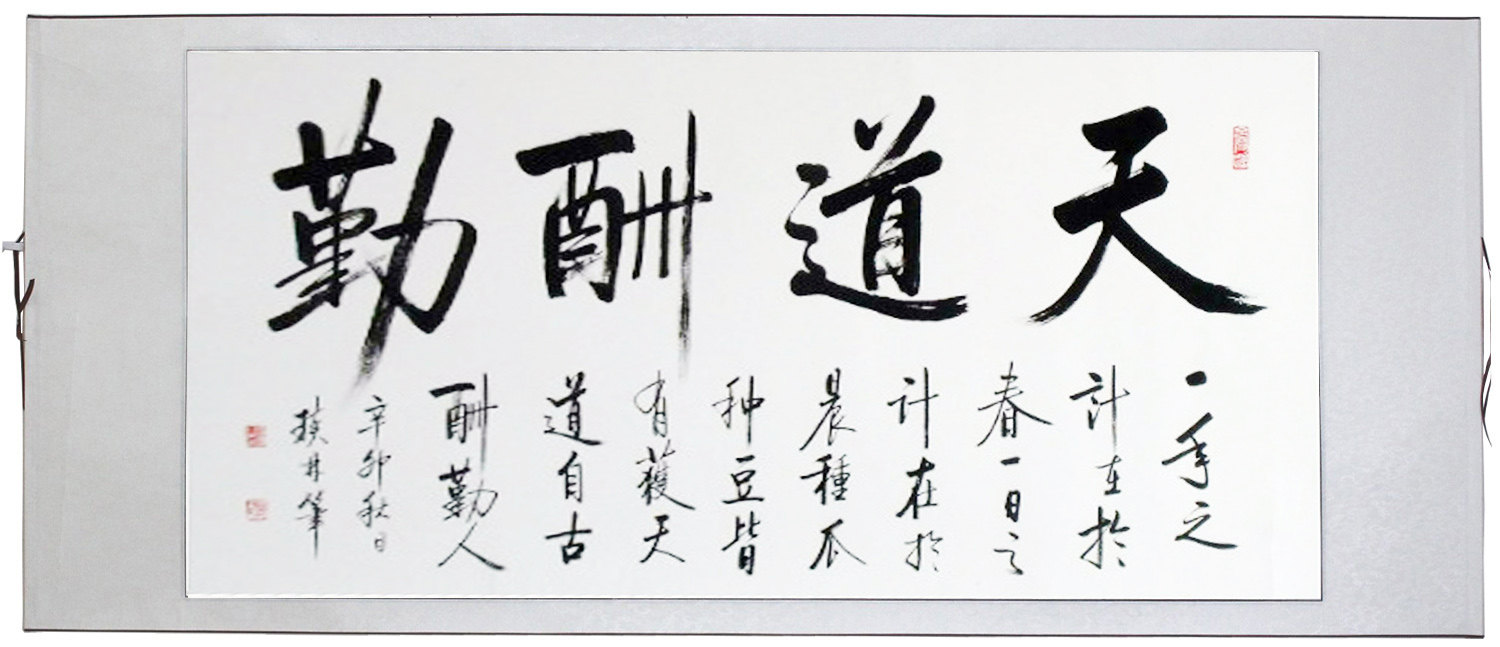 天道酬勤
一年之
計在於
春一日之
计在於
晨種瓜
种豆皆
有獲天
道自古
酬勤人
辛卯秋日